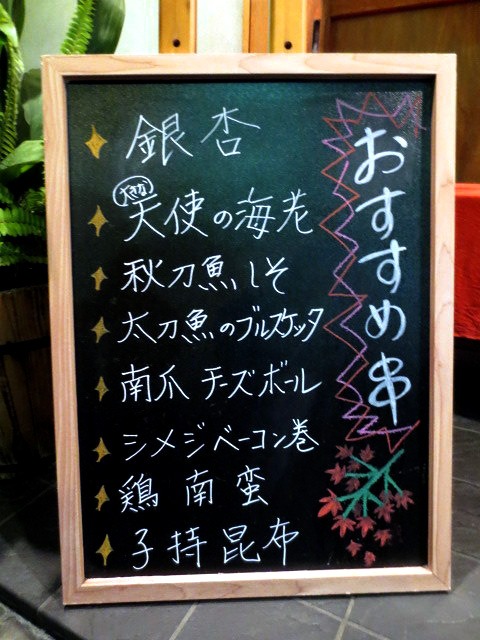 おすすめ串
銀杏
大きな
天使の海老
秋刀魚しそ
太刀魚のブルスケッタ
南爪 チーズボール
シメジベーコン巻
鶏南蛮
子持昆布